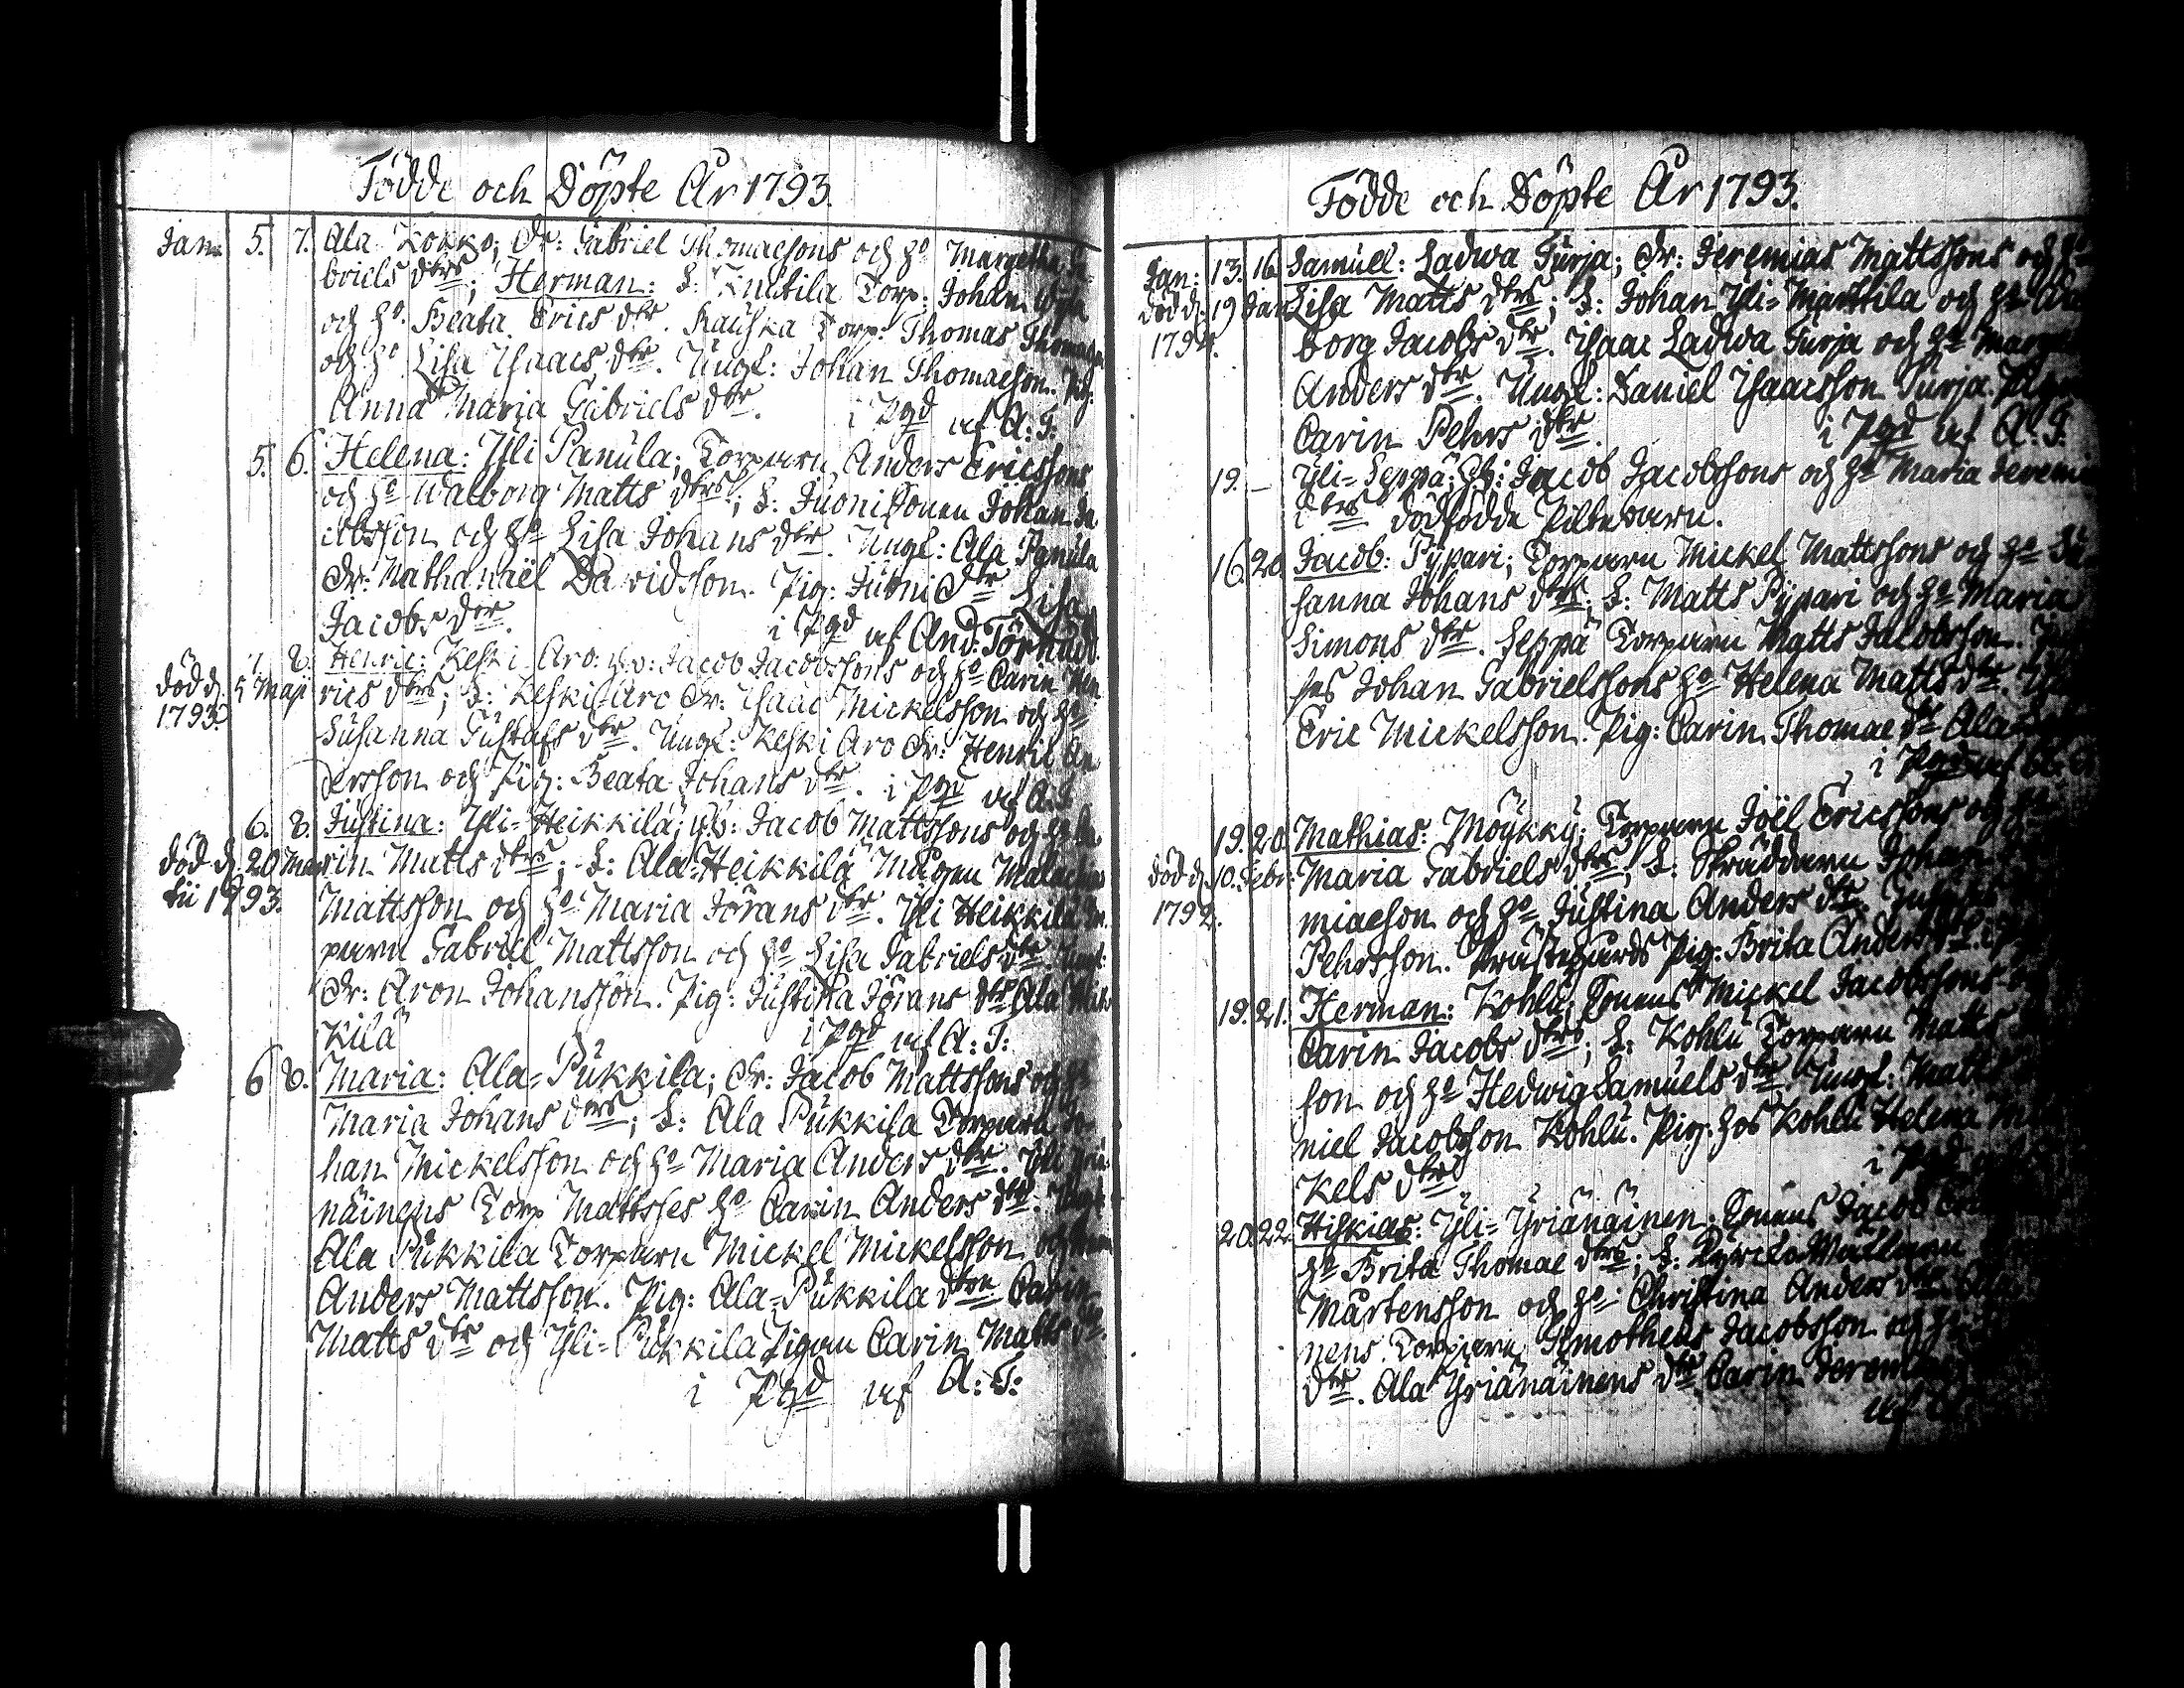 Födde och Döpte År 1793.
Jan: 5. 7. Ala Kokko; Dr: Gabriel Thomaesons och H:o Margetha Ga-
briels dtrs; Herman: S: Knutila Torp: Johan
och H:o Beata Erics dtr. Rauska Torp: Thomas
och H:o Lisa Isaacs dtr. Ungl: Johan Thomaeson. Pig:
Anna Maria Gabriels dtr. i Pgd af A: T:
5. 6. Helena: Yli Panula; Torparn Anders Ericssons
och H:o Walborg Matts dtrs; S: Juoni Sonen Johan Ja
cobsson och H:o Lisa Johans dtr. Ungl: Ala Panula
Dr: Nathanaël Davidsson. Pig: Juoni Dtr Lisa
Jacobs dtr. i Pgd af And: Törnudd.
7. 8. Henric: Keski Aro: Hb: Jacob Jacobssons och H:o Carin Hen
död d. 5 Maji rics dtrs; S: Keski Aro Dr: Isaac Mickelsson och H:o
1793. Susanna Gustafs dtr. Ungl: Keski Aro Dr: Henric An
dersson och Pig: Beata Johans dtr. i Pgd af A: T.
6. 8. Justina: Yli-Heikkilä; Hb: Jacob Mattssons och H:o Ca
död d. 20 Mar rin Matts dtrs; S: Ala-Heikkilä Mågen Malachias
tii 1793. Mattsson och H:o Maria Jörans dtr. Yli Heikkilä Tor
parn Gabriel Mattsson och H:o Lisa Gabriels dtr. Ungl:
Dr: Aron Johansson. Pig: Justina Jörans dtr Ala Heik
kilä i Pgd af A: T:
6 8. Maria: Ala-Pukkila; Dr: Jacob Mattssons och H:o
Maria Johans dtrs; S: Ala Pukkila Torparn Jo-
han Mickelsson och H:o Maria Anders dtr. Yli Yriä
näinens Torp Mattsses H:o Carin Anders dtr. Ungl:
Ala Pukkila Torparn Mickel Mickelsson och
Anders Mattsson. Pig: Ala-Pukkila dtrn Carin
Matts dtr och Yli-Pukkila Pigan Carin Matts dtr.
i Pgd af A: T:
Födde och Döpte År 1793.
Jan: 13. 16. Samuel: Ladwa Turja; Dr: Jeremias Mattssons och H:o
död d. 19 Jan Lisa Matts dtrs; S: Johan Yli-Marttila och H:o Wal
1794. borg Jacobs dtr. Isaac Ladwa Turja och H:o Marg
Anders dtr. Ungl: Daniel Isaacsson Turja. Pig
Carin Pehrs dtr. i Pgd af A: T.
19. – Yli-Seppä; Hb: Jacob Jacobssons och H:o Maria Jeremi
ae dtrs dödfödde Piltebarn.
16. 20. Jacob: Pypari; Torparn Mickel Mattssons och H:o Su
sanna Johans dtrs; S: Matts Pypari och H:o Maria
Simons dtr. Seppä Torparn Matts Jacobsson.
ses Johan Gabrielssons H:o Helena Matts dtr.
Eric Mickelsson. Pig: Carin Thomae dtr Ala
i Pgd af A:
19. 20. Mathias: Möykky; Torparn Joël Ericssons och H:o
död d. 10. Febr: Maria Gabriels dtrs; S: Skräddarn Johan
1794. miaeson och H:o Justina Anders dtr.
Pehrsson. Prästegårds Pig: Brita Anders
19. 21. Herman: Kohlu; Sonens Mickel Jacobssons
Carin Jacobs dtrs; S: Kohlu Torparn Matts
son och H:o Hedwig Samuels dtr. Ungl: Matts
niel Jacobsson Kohlu. Pig: hos Kohlu Helena Mi
kels dtr. i Pgd
20. 22. Hiskias: Yli-Yriänäinen; Sonens Jacob
H:o Brita Thomae dtrs; S:
Mårtensson och H:o Christina Anders dtr
nens Torparn Timotheus Jacobsson och H:o
dtr. Ala Yriänäinens dtr Carin Jeremiae
af A: